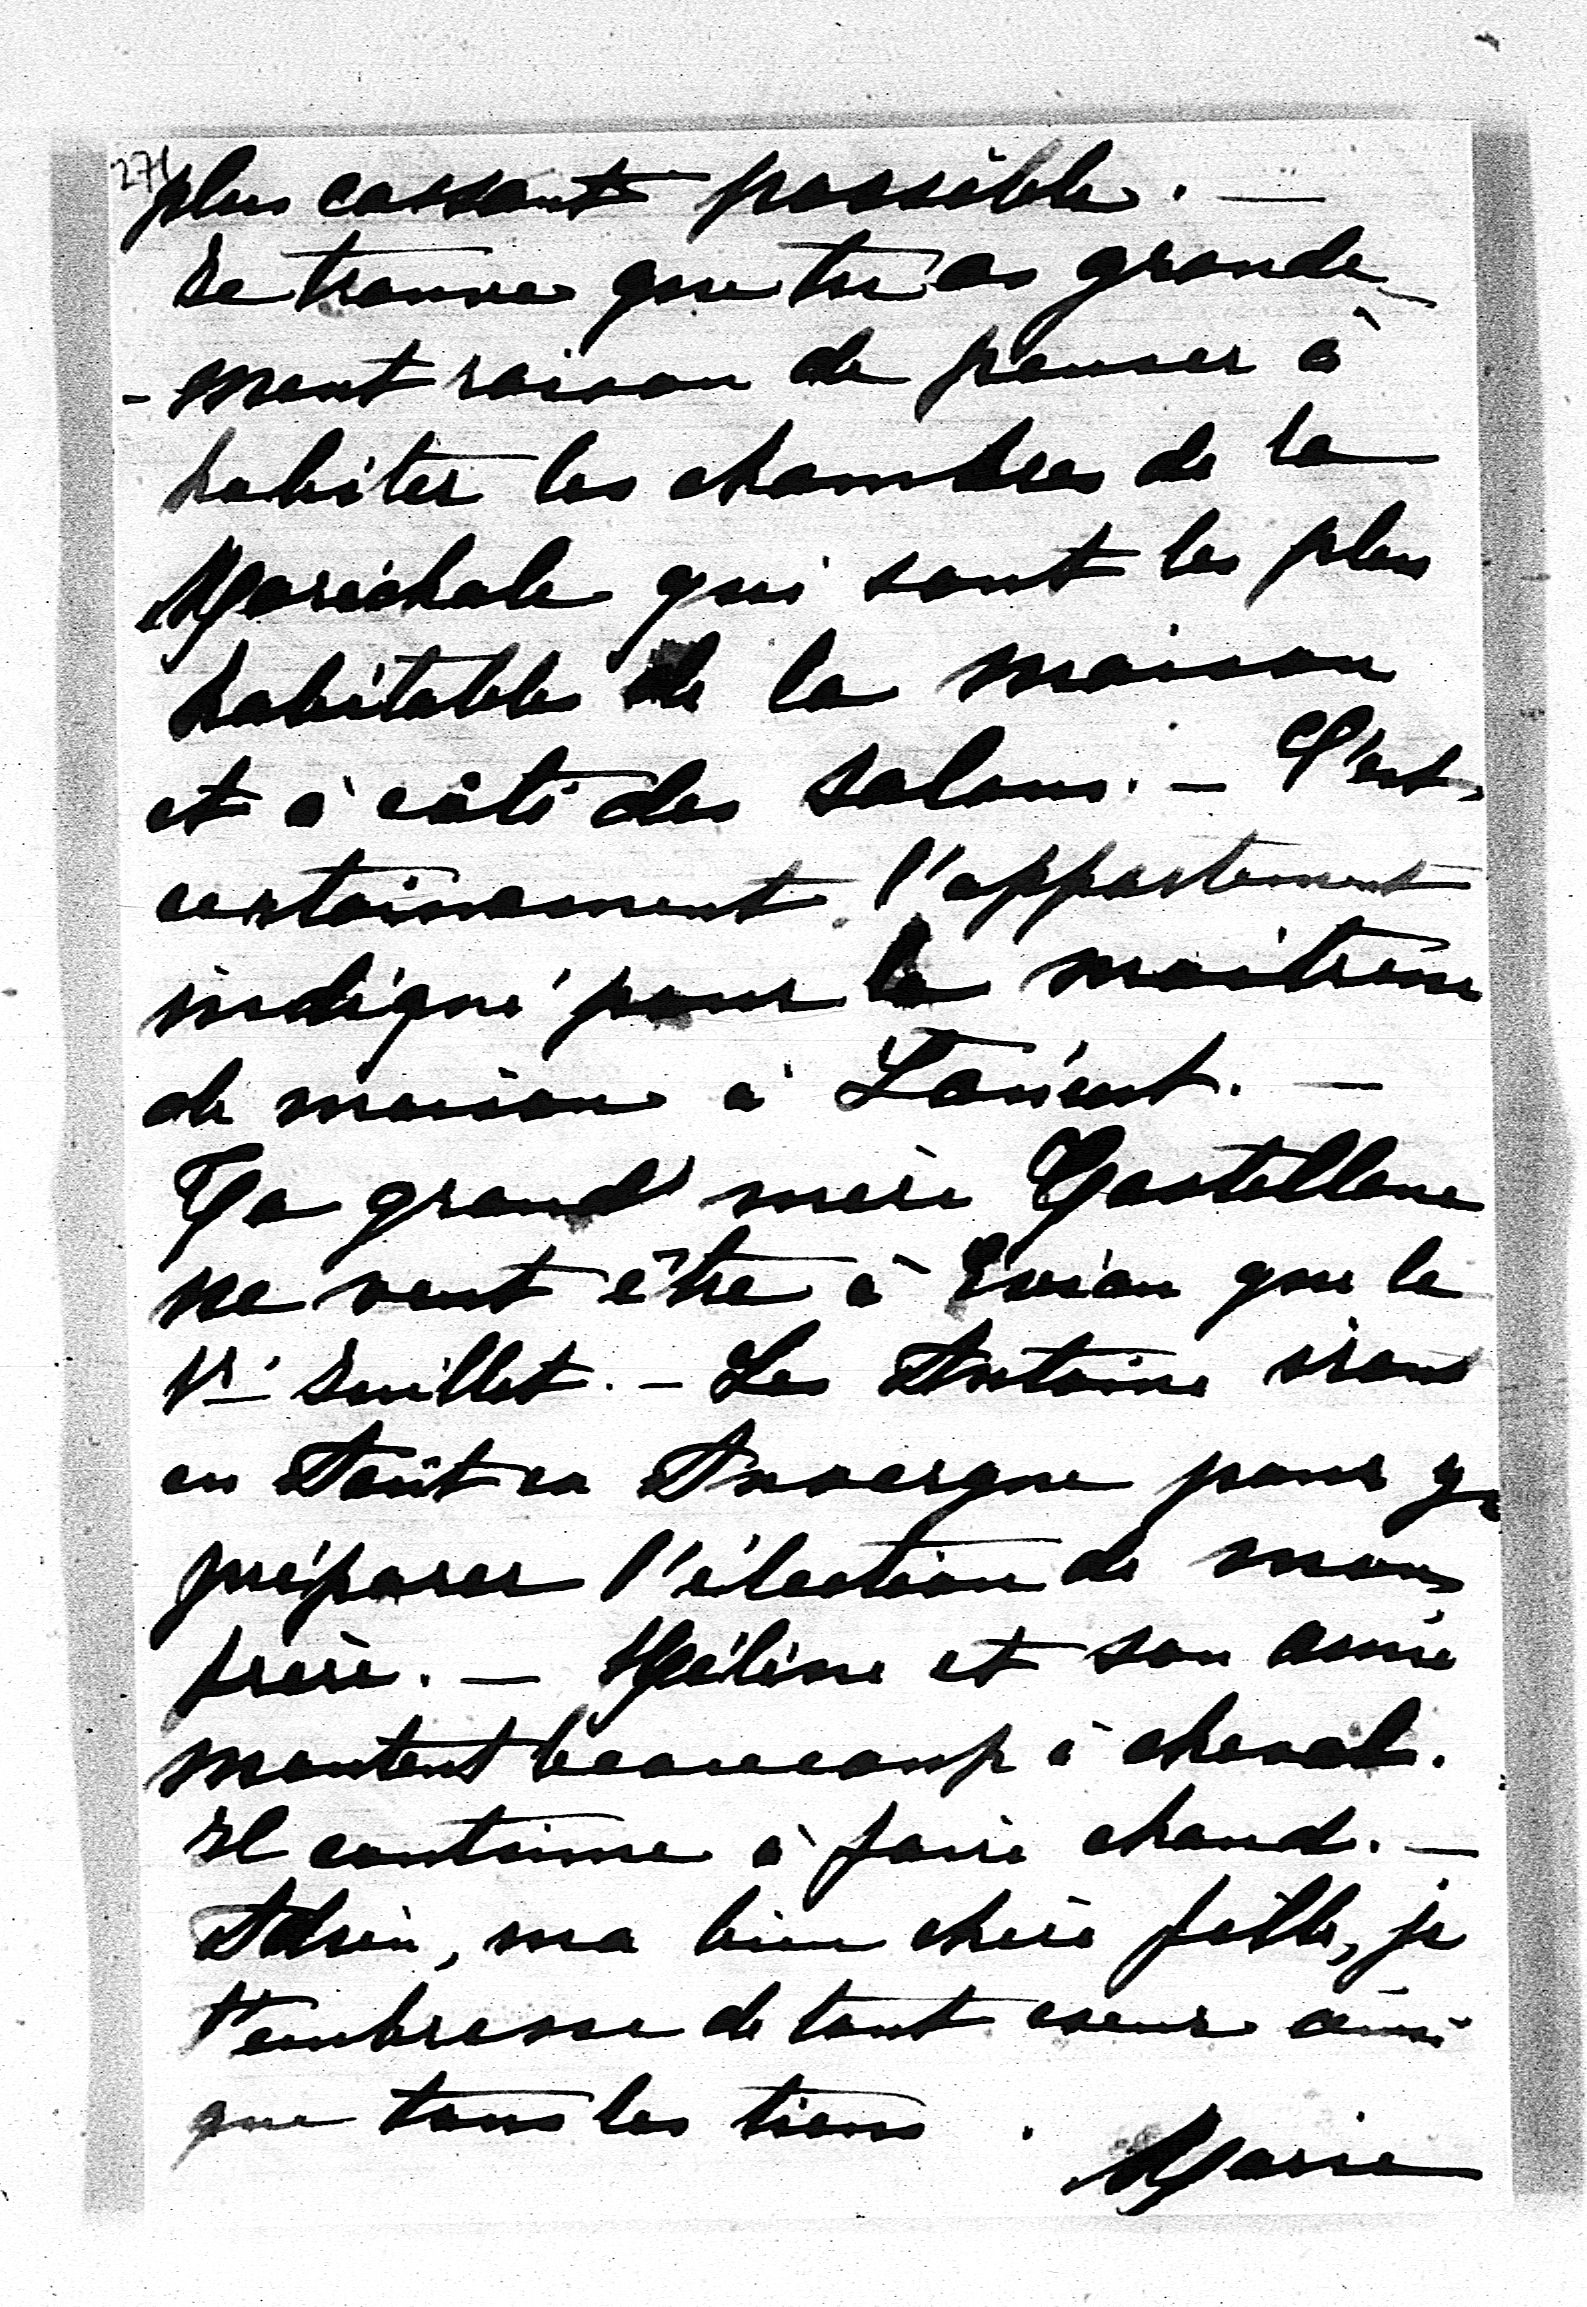 271
plus cassant possible. —
Je trouve que tu as grande-
-ment raison de penser à
habiter les chambres de la
Maréchale qui sont les plus
habitables de la maison
et à côté des salons. — C'est
certainement l'appartement
indiqué pour la maitresse
de maison à Launet. —
Ta grand'mère Castellane
ne veut être à Evian que le
1er Juillet. — Les Antoine iront
en Août en Auvergne pour y
préparer l'élection de mon
frère. — Hélène et son amie
montent beaucoup à cheval.
Il continue à faire chaud. —
Adieu, ma bien chère fille, je
t'embrasse de tout coeur ainsi
que tous les tiens.
Marie